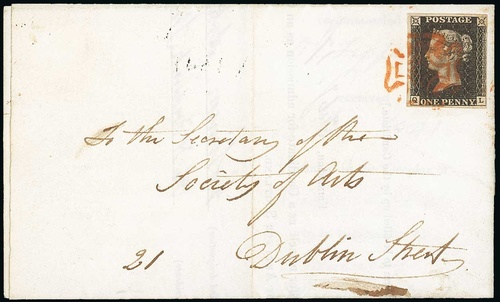 POSTAGE
Q L
ONE PENNY.
To the Secretary of the
Society of Arts
21 Dublin Street